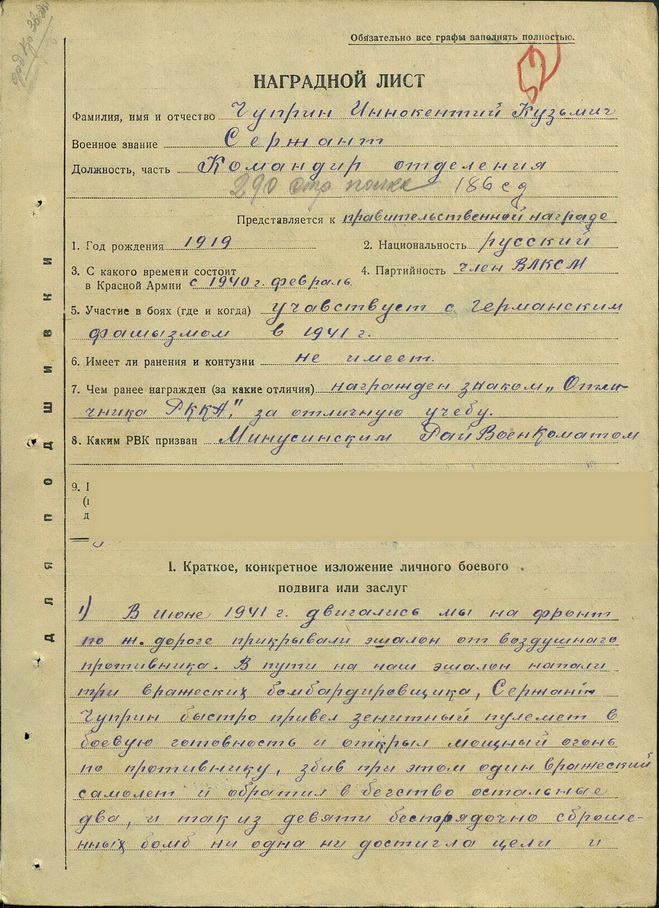 Обязательно все графы заполнять полностью.
52
НАГРАДНОЙ ЛИСТ
Фамилия, имя и отчество Чуприн Иннокентий Кузьмич
Военное звание Сержант
Должность, часть Командир отделения
290 стр полка 186 сд
Представляется к правительственной награде
1. Год рождения 1919
2. Национальность русский
3. С какого времени состоит
в Красной Армии с 1940 г. февраль
4. Партийность член ВЛКСМ
5. Участие в боях (где и когда) учавствует с германским
фашызмом в 1941 г.
6. Имеет ли ранения и контузии не имеет.
7. Чем ранее награжден (за какие отличия) награжден знаком „Отли-
чника РККА", за отличную учебу.
8. Каким РВК призван Минусинским РайВоенКоматом
9.
I. Краткое, конкретное изложение личного боевого
подвига или заслуг
1) В Июне 1941 г. двигались мы на фронт
по ж. дороге прикрывали эшалон от воздушнаго
противника. В пути на наш эшалон напали
три вражеских бомбардировщика, Сержант
Чуприн быстро привел зенитный пулемет в
боевую готовность и открыл мощный огонь
по противнику, збив при этом один вражеский
самолет и обратил в бегство остальные
два, и так из девяти беспорядочно сброше-
нных бомб ни одна ни достигла цели и
для подшивки